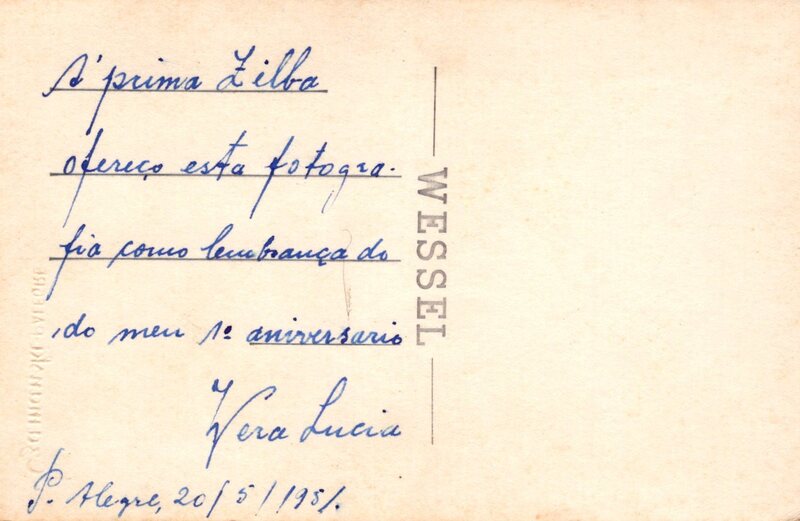 A' prima Zilba
ofereço esta fotogra-
fia como lembrança do
do meu 1º aniversario
Vera Lucia
P. Alegre, 20/5/1951.
WESSEL